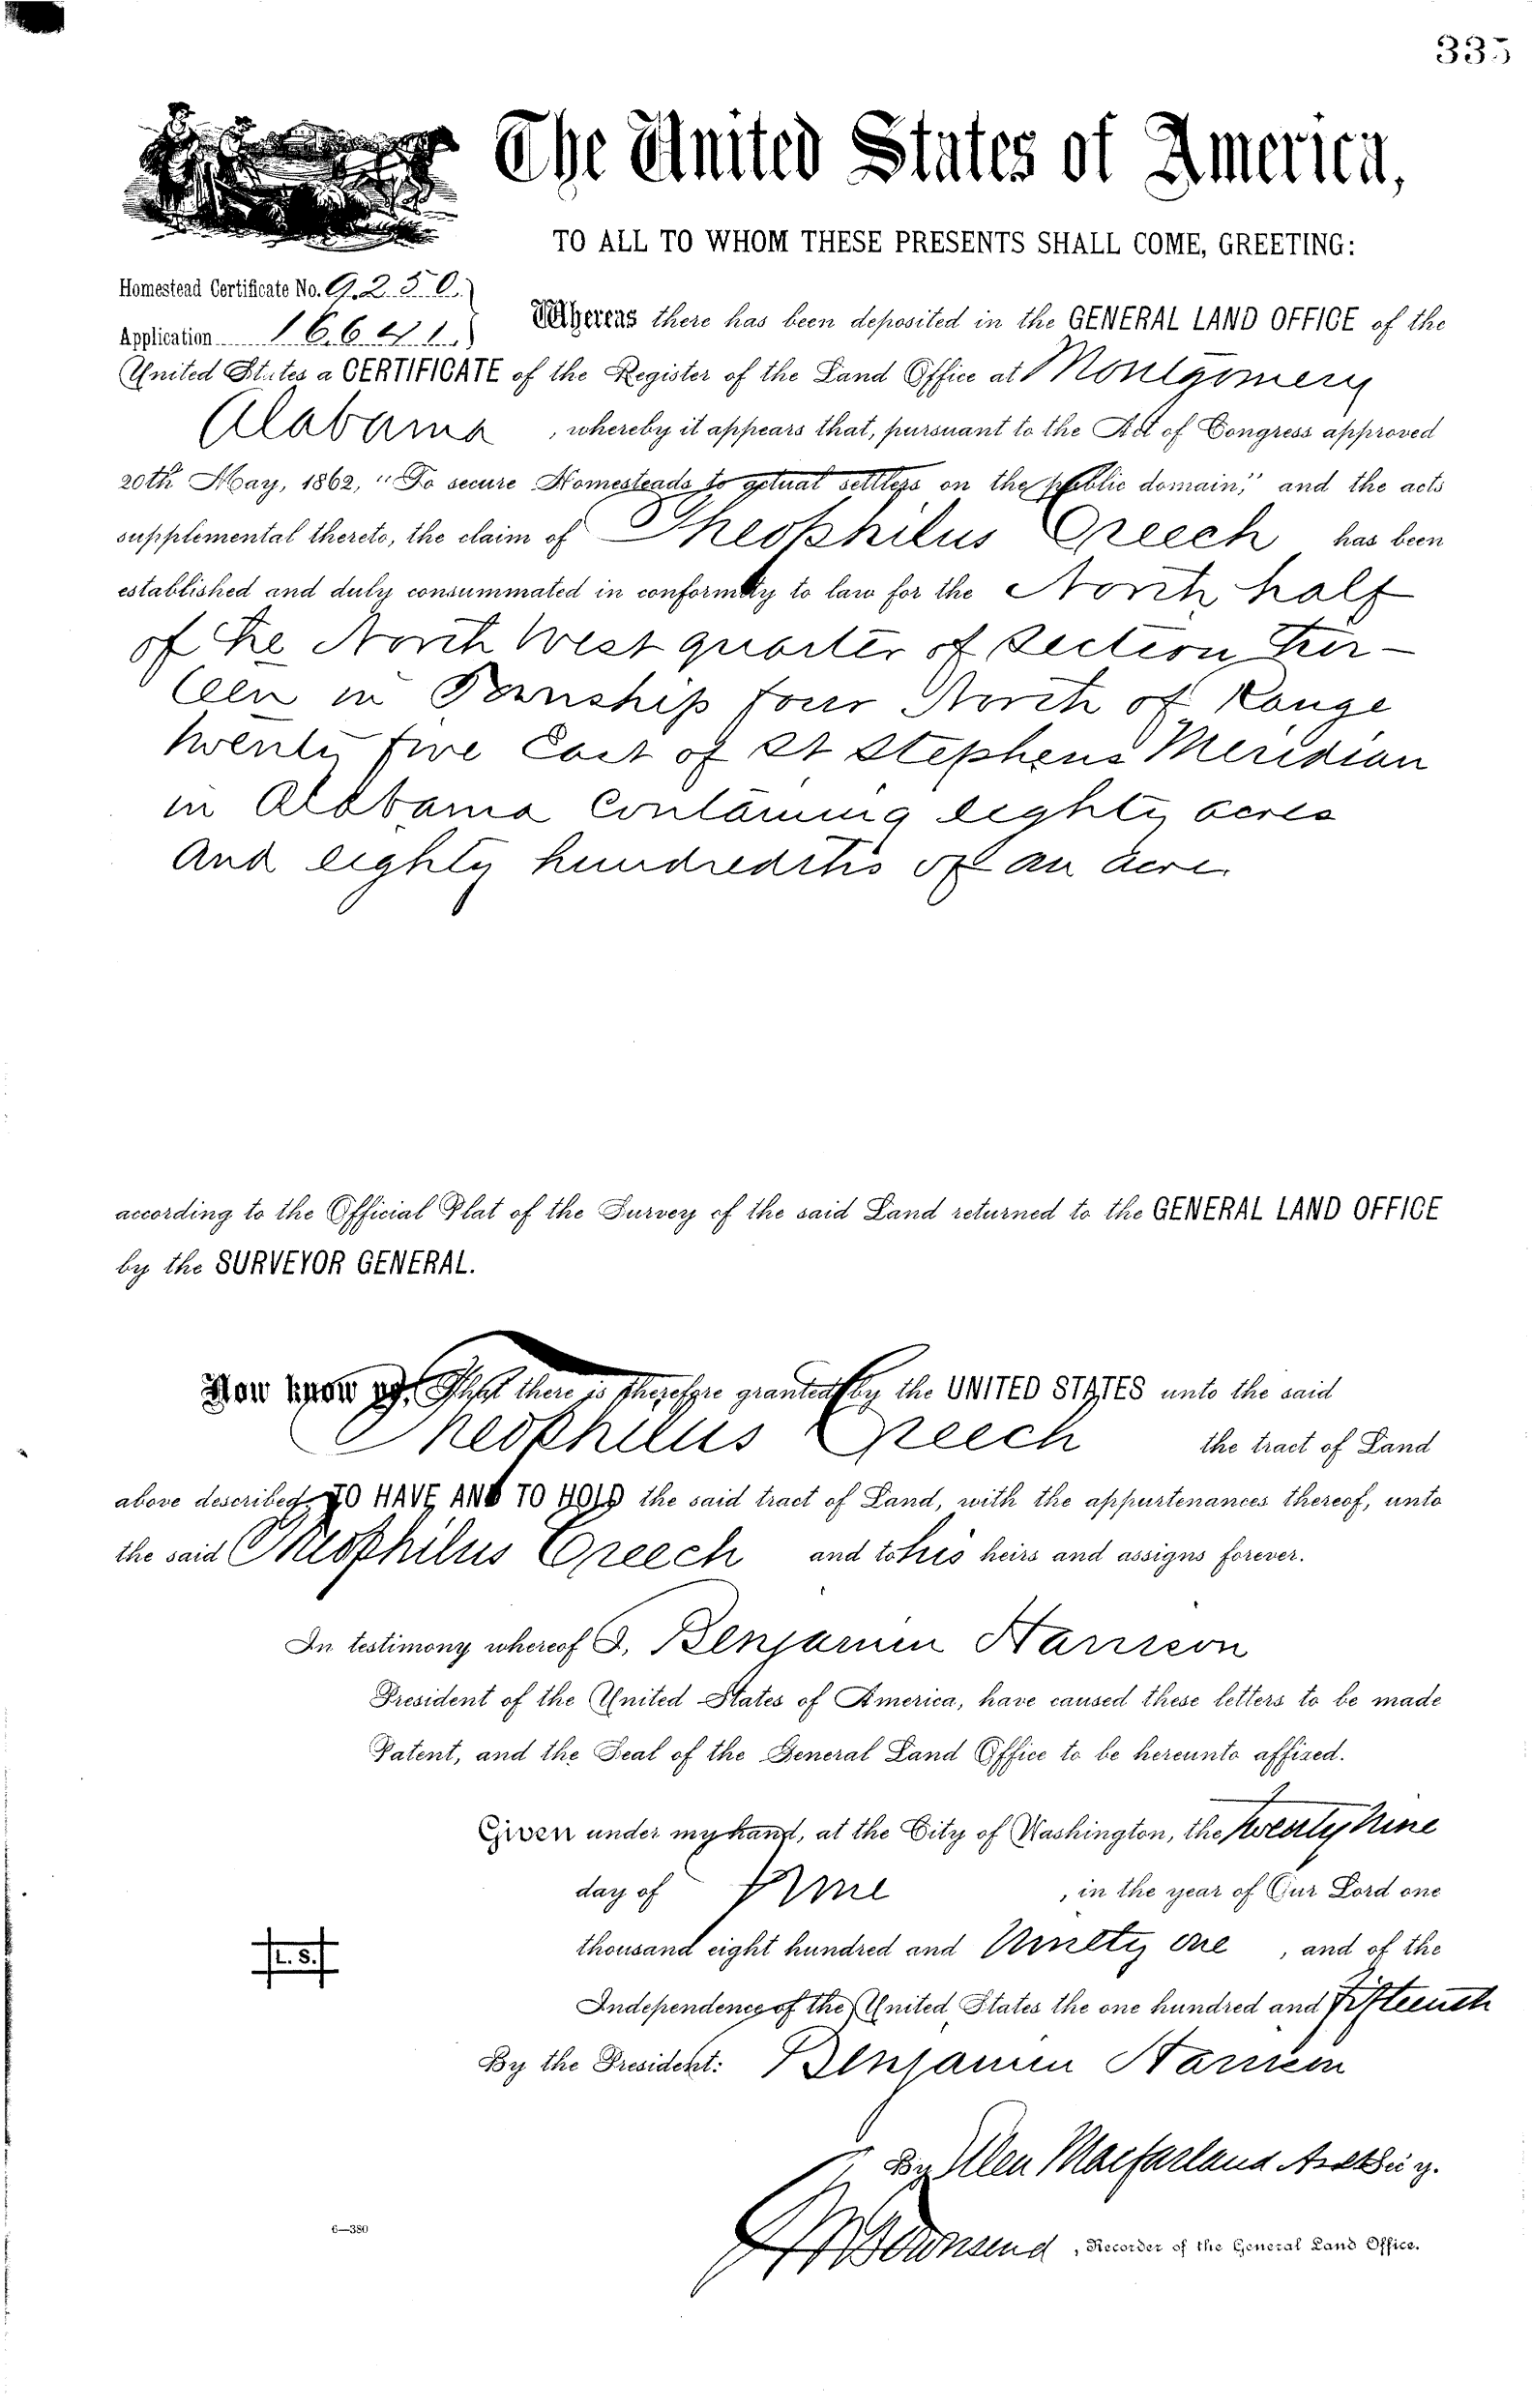 335
The United States of America,
TO ALL TO WHOM THESE PRESENTS SHALL COME, GREETING:
Homestead Certificate No. 9250
Application 16641
Whereas there has been deposited in the GENERAL LAND OFFICE of the
United States a CERTIFICATE of the Register of the Land Office at Montgomery
Alabama, whereby it appears that, pursuant to the Act of Congress approved
20th May, 1862, "To secure Homesteads to actual settlers on the public domain," and the acts
supplemental thereto, the claim of Theophilus Creech has been
established and duly consummated in conformity to law for the North half
of the North West quarter of Section
in Township four North of Range
twenty five East of St Stephens Meridian
in Alabama Containing eighty acres
And eighty hundredths of an acre
according to the Official Plat of the Survey of the said Land returned to the GENERAL LAND OFFICE
by the SURVEYOR GENERAL.
Now know ye, That there is therefore granted by the UNITED STATES unto the said
Theophilus Creech the tract of Land
above described, TO HAVE AND TO HOLD the said tract of Land, with the appurtenances thereof, unto
the said Theophilus Creech and to his heirs and assigns forever.
In testimony whereof I, Benjamin Harrison
President of the United States of America, have caused these letters to be made
Patent, and the Seal of the General Land Office to be hereunto affixed.
Given under my hand, at the City of Washington, the twenty nine
day of June, in the year of Our Lord one
thousand eight hundred and Ninety one, and of the
Independence of the United States the one hundred and fifteenth
L.S.
By the President: Benjamin Harrison
By Ellen Macfarland Asst Sec'y.
Townsend, Recorder of the General Land Office.
6—380